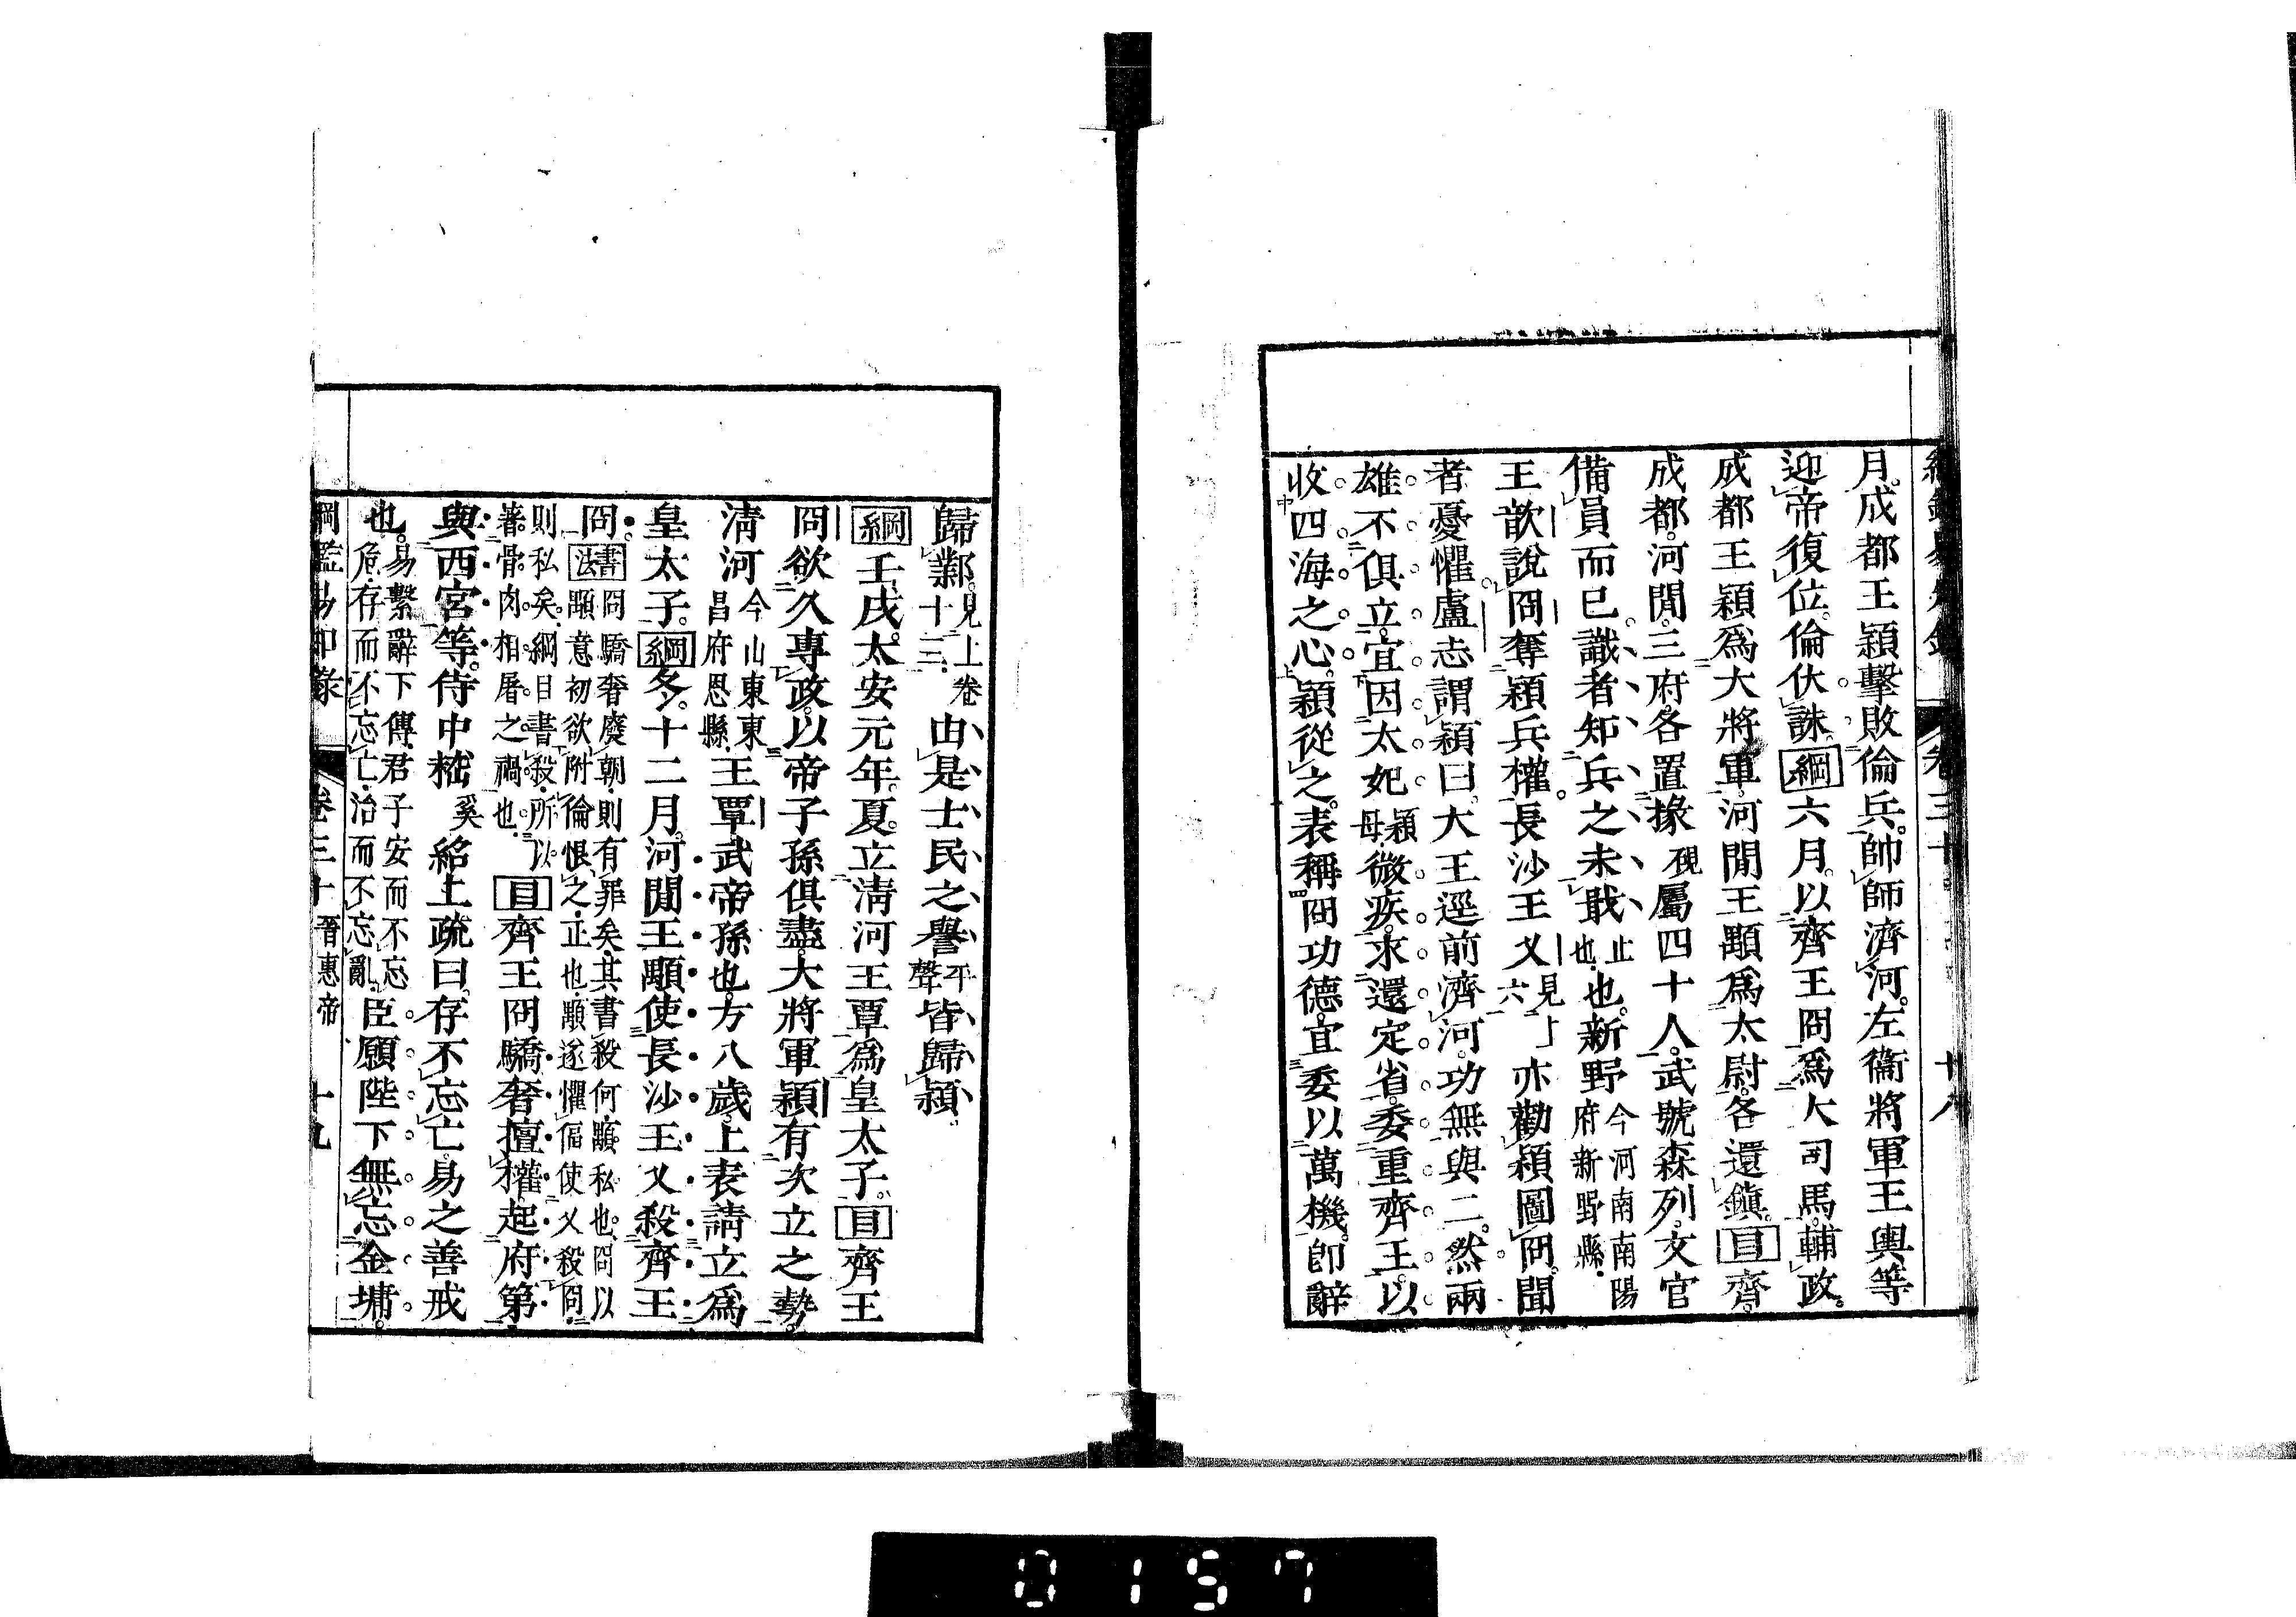 月成都王穎擊敗倫兵帥師濟河左衞將軍王輿等
迎帝復位倫伏誅綱六月以齊王冏爲大司馬輔政
成都王穎爲大將軍河閒王顒爲太尉各還鎭目齊
成都河閒三府各置掾硯屬四十人武號森列文官
備員而已識者知兵之未戢止也也新野今河南南陽府新野縣
王歆說冏奪穎兵權長沙王乂見上六亦勸穎圖冏聞
者憂懼盧志謂穎曰大王逕前濟河功無與二然兩
雄不俱立宜因太妃穎母微疾求還定省委重齊王以
收四海之心穎從之表稱冏功德宜委以萬機卽辭
卷三十
歸鄴見上卷十三由是士民之譽平聲皆歸穎
綱壬戌太安元年夏立淸河王覃爲皇太子目齊王
冏欲久專政以帝子孫俱盡大將軍穎有次立之勢
淸河今山東東昌府恩縣王覃武帝孫也方八歲上表請立爲
皇太子綱冬十二月河閒王顒使長沙王乂殺齊王
冏書法冏驕奢廢朝則有罪矣其書殺何顒私也冏以顒意初欲附倫恨之正也顒遂懼偪使乂殺冏
則私矣綱目書殺所以著骨肉相屠之禍也目齊王冏驕奢擅權起府第
與西宮等侍中嵇奚紹上疏曰存不忘亡易之善戒
也易繫辭下傳君子安而不忘危存而不忘亡治而不忘亂臣願陛下無忘金墉
綱鑑易知錄 卷三十 晉惠帝 十九
0157